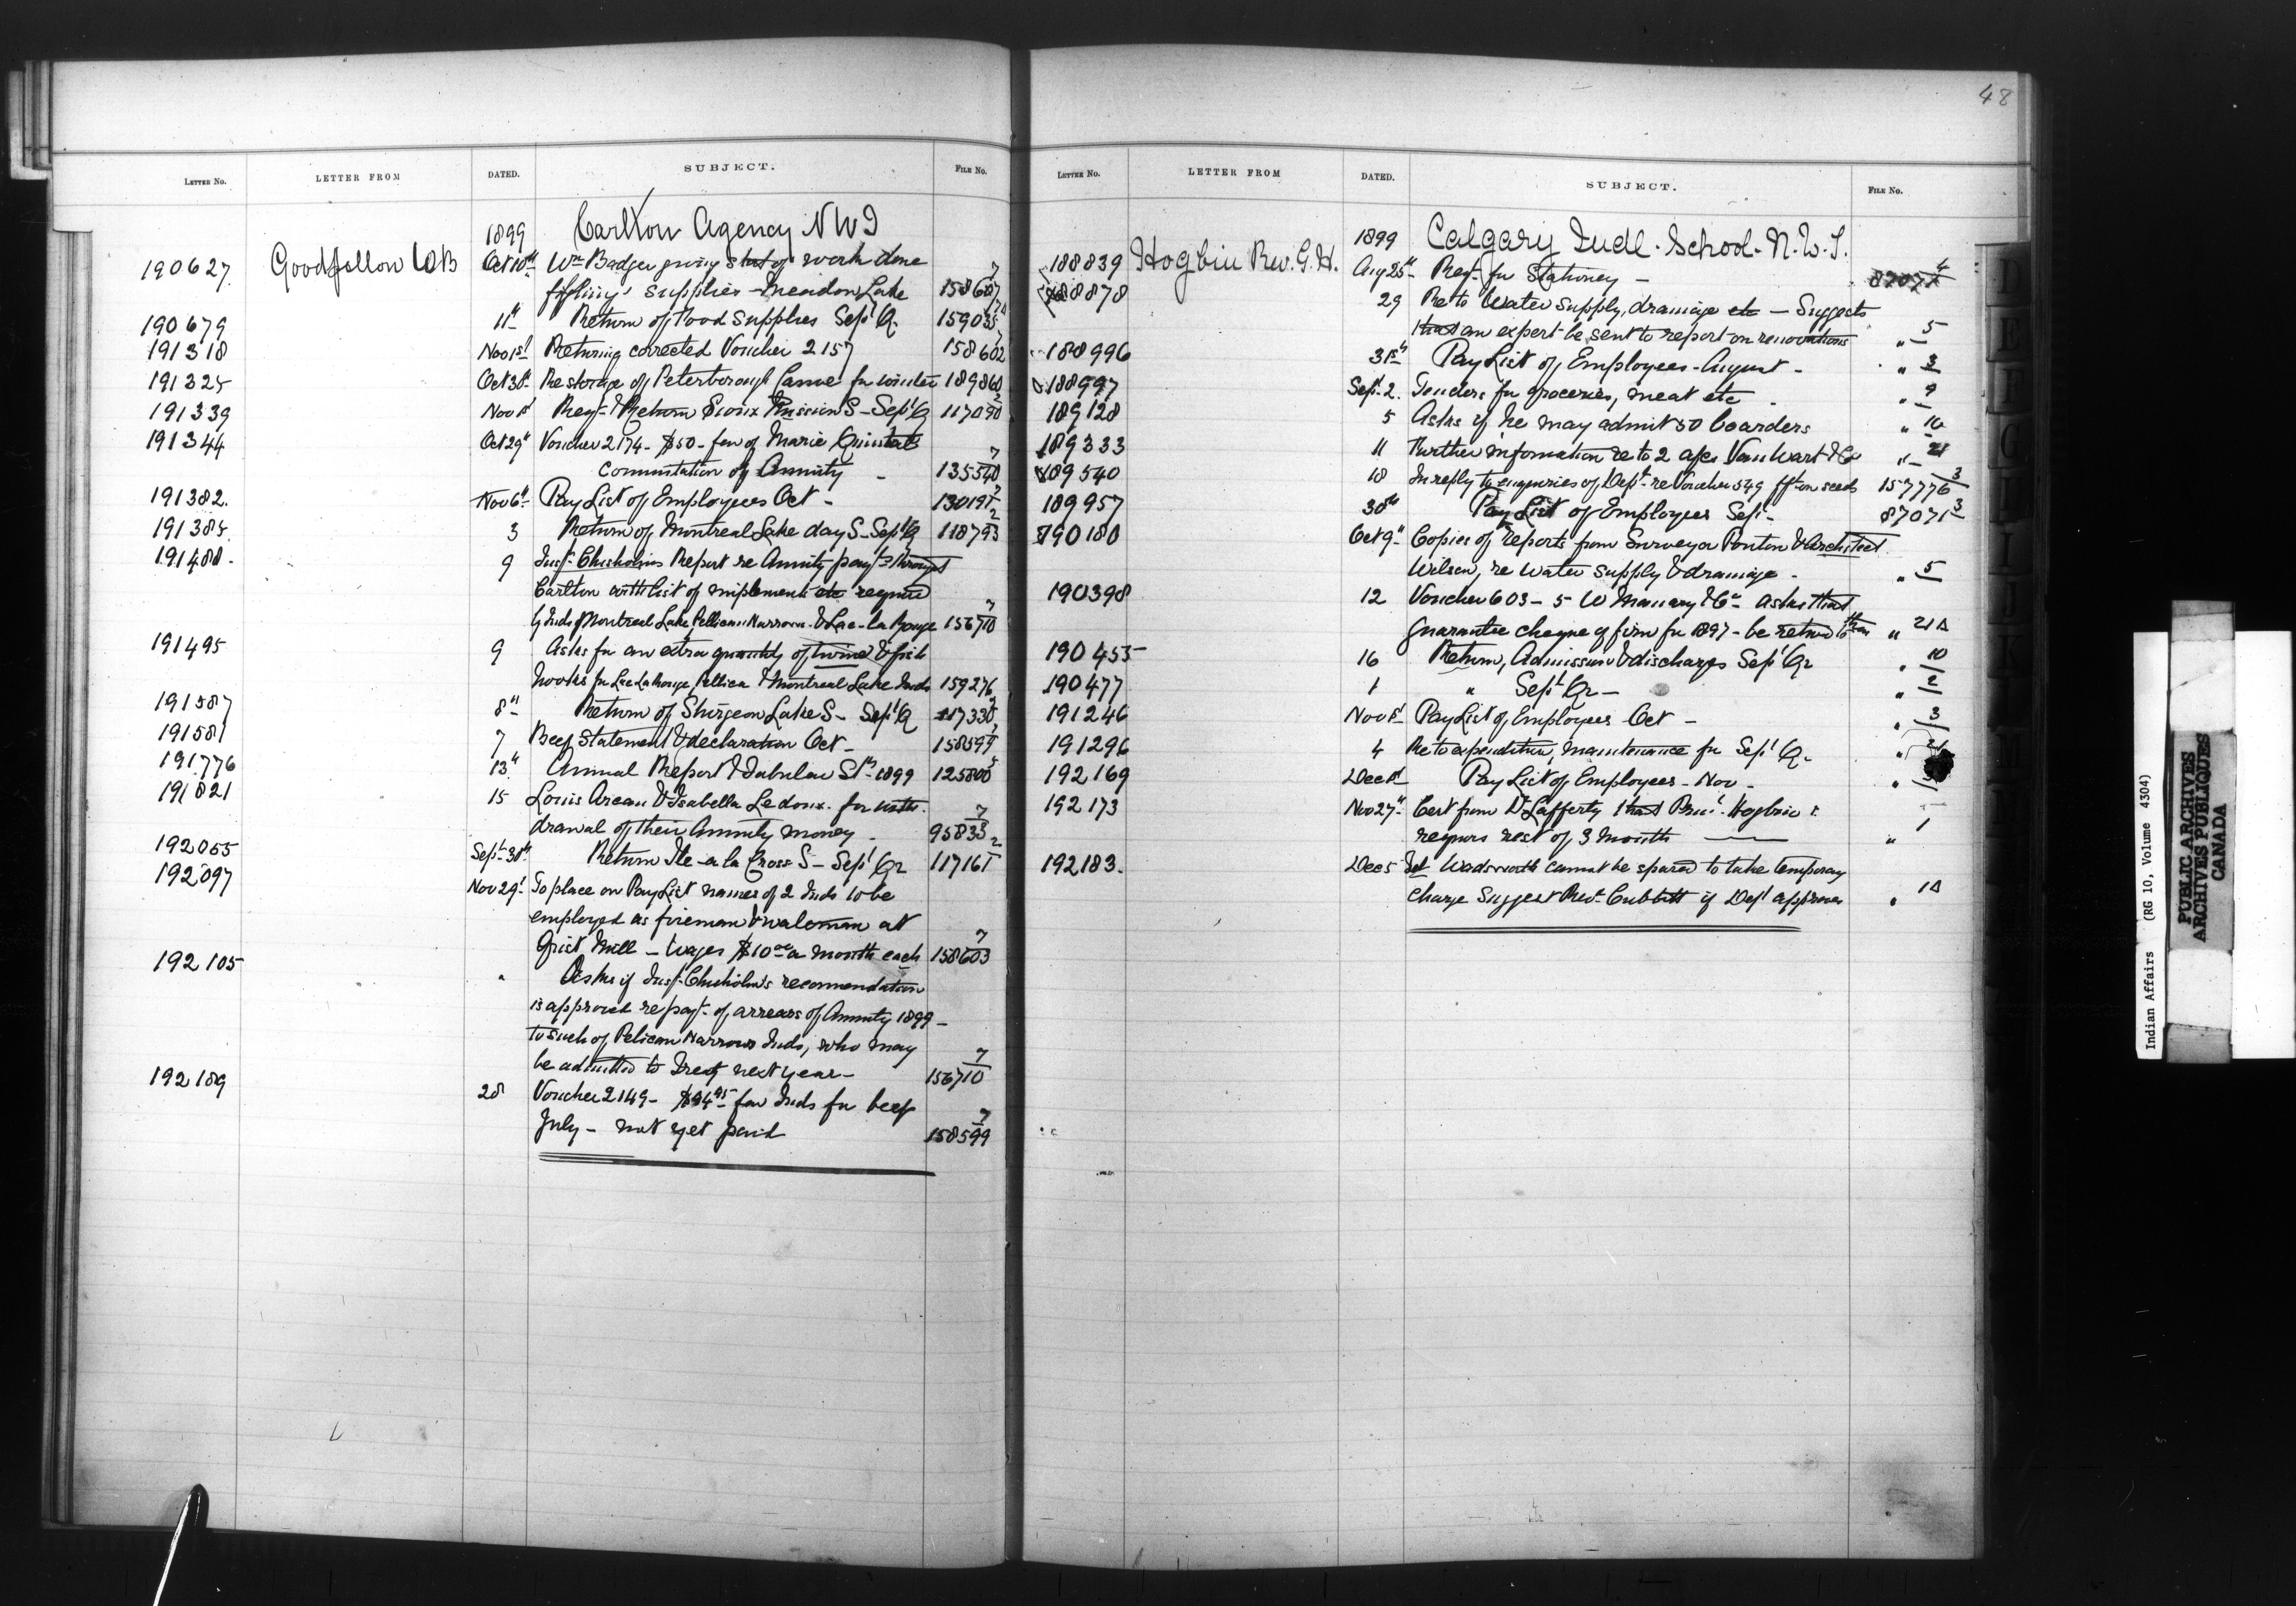 48
LETTER NO. LETTER FROM DATED. SUBJECT. FILE No.
1899 Carlton Agency NWT
190627 Goodfellow WB Oct 10th Wm Badger giving of work done
supplies - Meadow Lake 7
190679 11th Return of Food Supplies Sept Q. 159035
191318 Nov 1st Returning corrected Voucher 2157 158602
191325 Oct 30th Re storage of Peterborough Canoe for winter 189860
191339 Nov 1st Return Sioux Mission S - Sept Q 117090
191344 Oct 29th Voucher 2174 - $50 - fav of Marie
Commutation of Annuity - 7
191382. Nov 6th Pay List of Employees Oct - 130191
191385 3 Return of Montreal Lake day S - Sept Q 118793
191480 9 Insp Chisholms Report re Annuity payts
Carlton with list of implements etc required
by Inds of Montreal Lake, Pellican Narrows & Lac-la Ronge 156710 7
191495 9 Asks for an extra quantity of twine & fish
hooks for Lac La Ronge, Pellican & Montreal Lake Inds 159276
191587 8th Return of Sturgeon Lake S - Sept Q
191581 7 Beef Statement & declaration Oct - 158599
191776 13th Annual Report & Tabular St 1899 125800
191821 15 Louis Arcan & Isabella Ledoux for with-
drawal of their Annuity money - 95833 7
192055 Sept 30th Return Ile-a la Crosse S - Sept Qr 117161 2
192097 Nov 29t To place on Pay List names of 2 Inds to be
employed as fireman & at
Grist Mill - Wages $10 00 a month each 158603 7
192105 " Asks if Insp Chisholm's recommendation
is approved re payt of arrears of Annuity 1899 -
to such of Pelican Narrows Inds, who may
be admitted to Treaty next year - 156710 7
192189 28 Voucher 2149 - fav Inds for beef
July - not yet paid 158599 7
LETTER NO. LETTER FROM DATED. SUBJECT. FILE No.
1899 Calgary Indl. School - N.W.T.
188839 Hogbin Rev. G.H. Aug 25th Reqt for Stationery - 87071 4
188878 29 Re to Water supply, drainage etc - Suggests
that an expert be sent to report on renovations " 5
188996 31st Pay List of Employees - August - " 3
188997 Sept 2. Tenders for groceries, meat etc - " 9
189128 5 Asks if he may admit 50 boarders " 10
189333 11 Further information re to 2 a/cs Van Wart & Co " 21
189540 18 In reply to enquiries of Dept re Voucher 549 fft on seeds 157776 3
189957 30th Pay List of Employees Sept - 87071 3
190180 Oct 9th Copies of reports from Surveyor Ponton & Architect
Wilson, re Water supply & drainage - " 5
190398 12 Voucher 603 - 5 & Co - asks that
guarantee cheque of firm for 1897 - be returned to them " 21A
190455 16 Return, Admission & discharges Sept Qr " 10
190477 1 " Sept Qr - " 2
191246 Nov 1st Pay List of Employees Oct - " 3
191296 4 Re to expenditure, maintenance for Sept Q. "
192169 Dec 1st Pay List of Employees - Nov - "
192173 Nov 27th Cert from Dr Lafferty that Princl Hogbin
requires rest of 3 months - " 1
192183. Dec 5 Wadsworth cannot be spared to take temporary
charge Suggest Revt Cubbitt if Dept approves " 1A
Indian Affairs (RG 10, Volume 4304)
PUBLIC ARCHIVES
ARCHIVES PUBLIQUES
CANADA